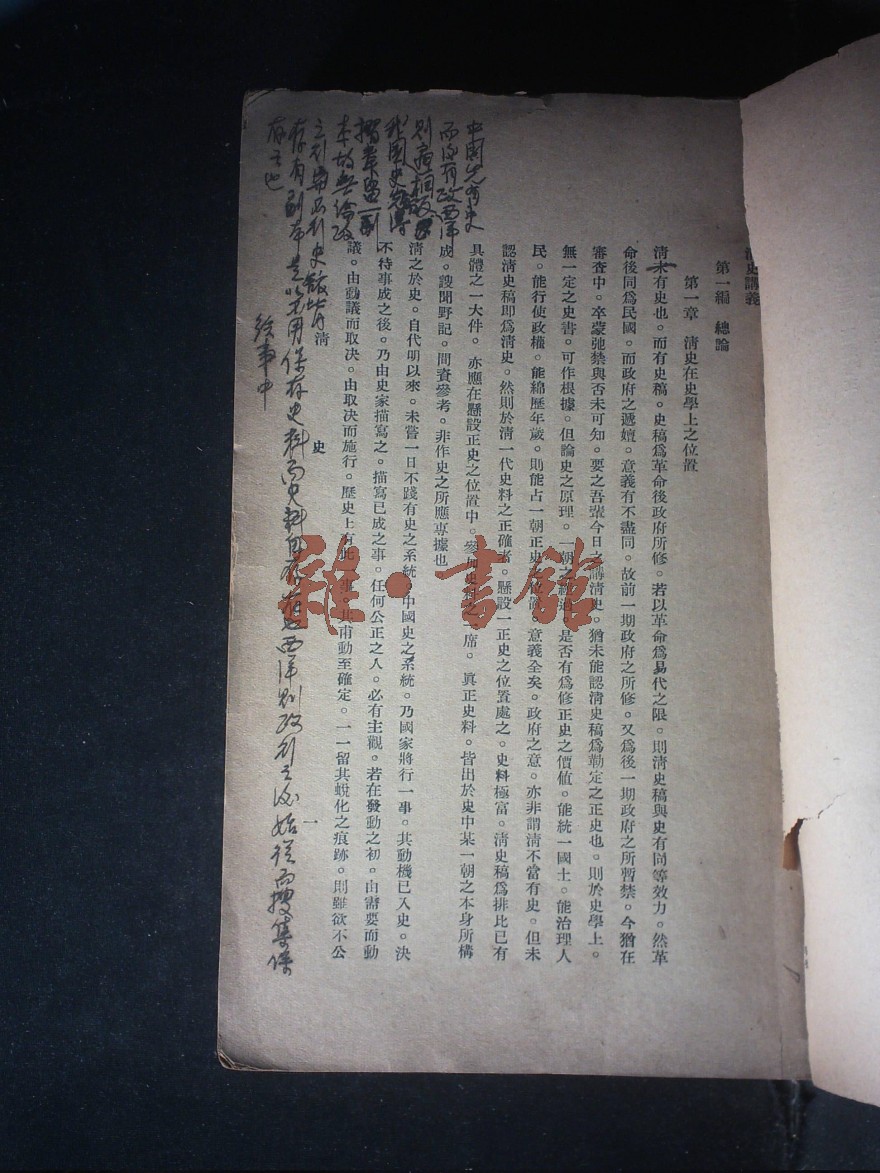 清史講義
第一編 總論
第一章 清史在史學上之位置
清未有史也。而有史稿。史稿爲革命後政府所修。若以革命爲易代之限。則清史稿與史有同等效力。然革
命後同爲民國。而政府之遞嬗。意義有不盡同。故前一期政府之所修。又爲後一期政府之所暫禁。今猶在
審查中。卒蒙弛禁與否未可知。要之吾輩今日之講清史。猶未能認清史稿爲勒定之正史也。則於史學上。
無一定之史書。可作根據。但論史之原理。一朝之經過。是否有爲修正史之價值。能統一國土。能治理人
民。能行使政權。能綿歷年歲。則能占一朝正史之位置。意義全矣。政府之意。亦非謂清不當有史。但未
認清史稿即爲清史。然則於清一代史料之正確者。懸設一正史之位置處之。史料極富。清史稿爲排比已有
具體之一大件。亦應在懸設正史之位置中。參加史料之一席。真正史料。皆出於史中某一朝之本身所構
成。謏聞野記。間資參考。非作史之所應專據也
清之於史。自代明以來。未嘗一日不踐有史之系統。中國史之系統。乃國家將行一事。其動機已入史。決
不待事成之後。乃由史家描寫之。描寫已成之事。任何公正之人。必有主觀。若在發動之初。由需要而動
議。由動議而取决。由取决而施行。歷史上有此一事。其甫動至確定。一一留其蛻化之痕跡。則雖欲不公
清 史 一
中國先有史
而後有政西洋
則適相反
我國史
本故無論政
存有副本是以先用保存史料而史料自存 西洋則政行之後始從而搜集保
存之也
給事中
雜·書館